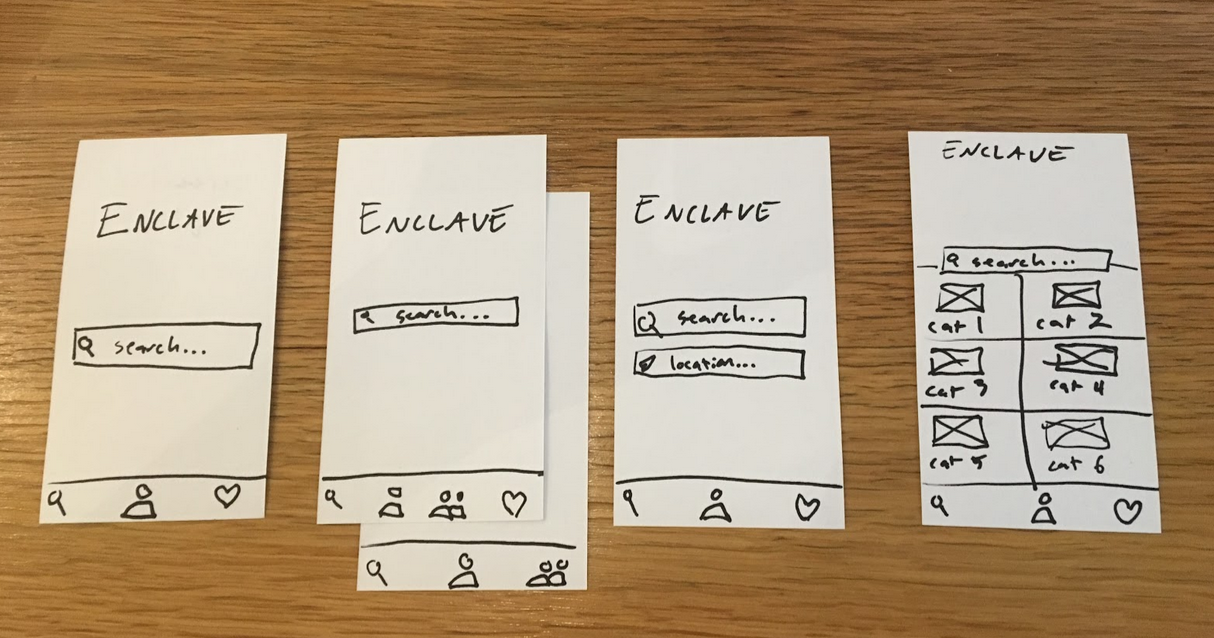 ENCLAVE
search...
ENCLAVE
search...
ENCLAVE
search...
location...
ENCLAVE
search...
cat 1
cat 2
cat 3
cat 4
cat 5
cat 6